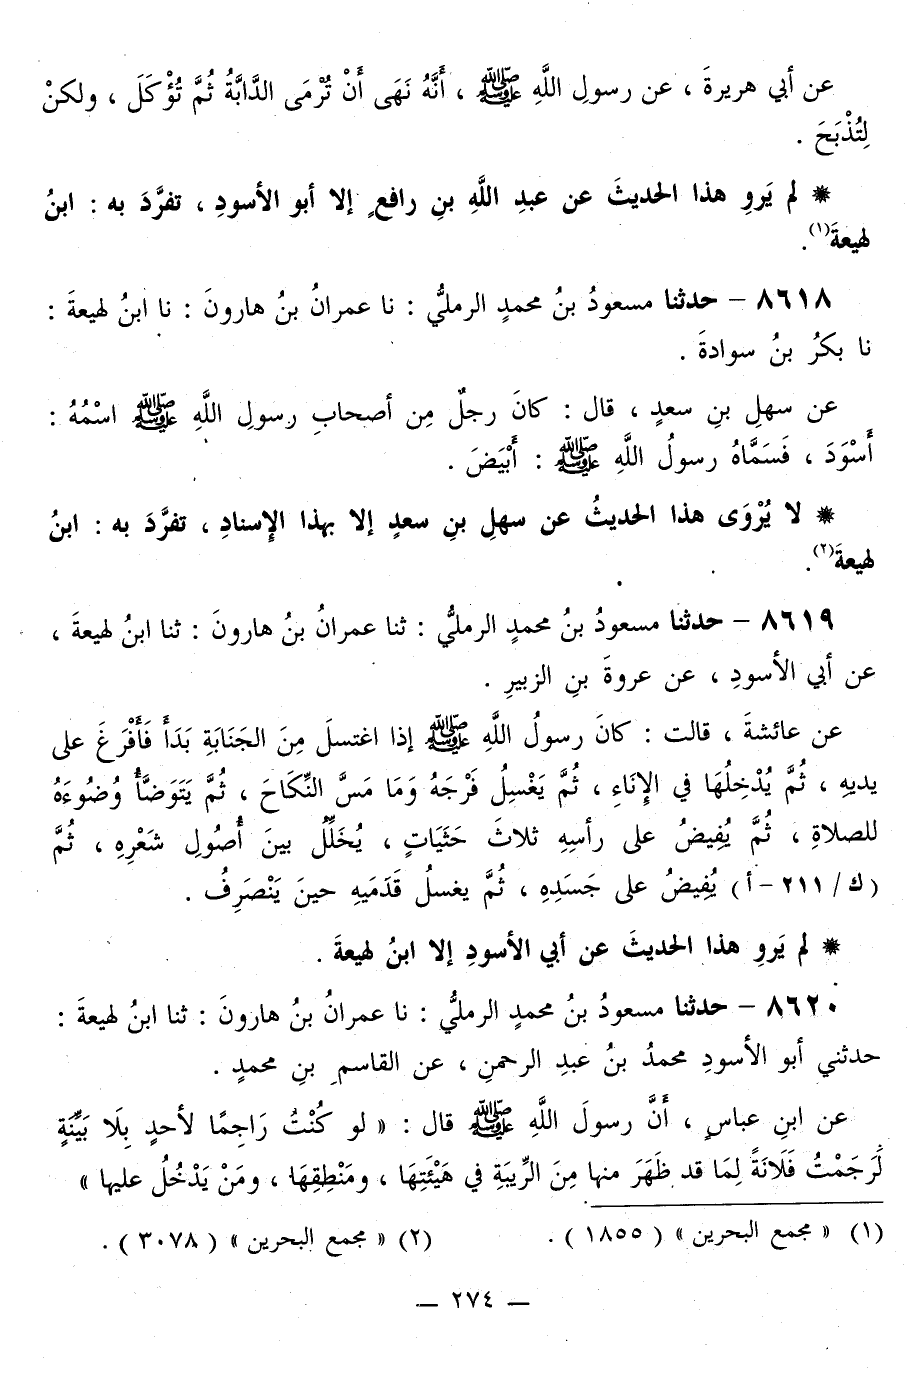 عن أبي هريرةَ ، عن رسولِ اللَّهِ ﷺ ، أَنَّهُ نَهَى أَنْ تُرْمَى الدَّابَّةُ ثُمَّ تُؤْكَلَ ، ولكنْ
لِتُذْبَحَ .
* لم يَروِ هذا الحديثَ عن عبدِ اللَّهِ بنِ رافعٍ إلا أبو الأسودِ ، تفرَّدَ به : ابنُ
لهيعةَ(١).
٨٦١٨ – حدثنا مسعودُ بنُ محمدٍ الرمليُّ : نا عمرانُ بنُ هارونَ : نا ابنُ لهيعةَ :
نا بكرُ بنُ سوادةَ .
عن سهلِ بنِ سعدٍ ، قال : كانَ رجلٌ مِن أصحابِ رسولِ اللَّهِ ﷺ اسْمُهُ :
أَسْوَدَ ، فَسَمَّاهُ رسولُ اللَّهِ ﷺ : أَبْيَضَ .
* لا يُرْوَى هذا الحديثُ عن سهلِ بنِ سعدٍ إلا بهذا الإِسنادِ ، تفرَّدَ به : ابنُ
لهيعةَ(٢).
٨٦١٩ – حدثنا مسعودُ بنُ محمدٍ الرمليُّ : ثنا عمرانُ بنُ هارونَ : ثنا ابنُ لهيعةَ ،
عن أبي الأسودِ ، عن عروةَ بنِ الزبيرِ .
عن عائشةَ ، قالت : كانَ رسولُ اللَّهِ ﷺ إذا اغتسلَ مِنَ الجَنَابَةِ بَدَأَ فَأَفْرَغَ على
يديهِ ، ثُمَّ يُدْخِلُهَا في الإِنَاءِ ، ثُمَّ يَغْسِلُ فَرْجَهُ وَمَا مَسَّ النِّكَاحَ ، ثُمَّ يَتَوَضَّأُ وُضُوءَهُ
للصلاةِ ، ثُمَّ يُفِيضُ على رأسِهِ ثلاثَ حَثَيَاتٍ ، يُخَلِّلُ بينَ أُصُولِ شَعْرِهِ ، ثُمَّ
(ك/ ٢١١ - أ) يُفِيضُ على جَسَدِهِ ، ثُمَّ يغسلُ قَدَمَيهِ حينَ يَنْصَرِفُ .
* لم يَروِ هذا الحديثَ عن أبي الأسودِ إلا ابنُ لهيعةَ .
٨٦٢٠ – حدثنا مسعودُ بنُ محمدٍ الرمليُّ : نا عمرانُ بنُ هارونَ : ثنا ابنُ لهيعةَ :
حدثني أبو الأسودِ محمدُ بنُ عبدِ الرحمنِ ، عن القاسمِ بنِ محمدٍ .
عن ابنِ عباسٍ ، أَنَّ رسولَ اللَّهِ ﷺ قال : « لو كُنْتُ رَاجِمًا لأحدٍ بِلَا بَيِّنَةٍ
لَرَجَمْتُ فَلَانَةً لِمَا قد ظَهَرَ منها مِنَ الرِّيبَةِ في هَيْئَتِهَا ، ومَنْطِقِهَا ، ومَنْ يَدْخُلُ عليها »
(١) « مجمع البحرين » ( ١٨٥٥ ) . (٢) « مجمع البحرين » ( ٣٠٧٨ ) .
— ٢٧٤ —